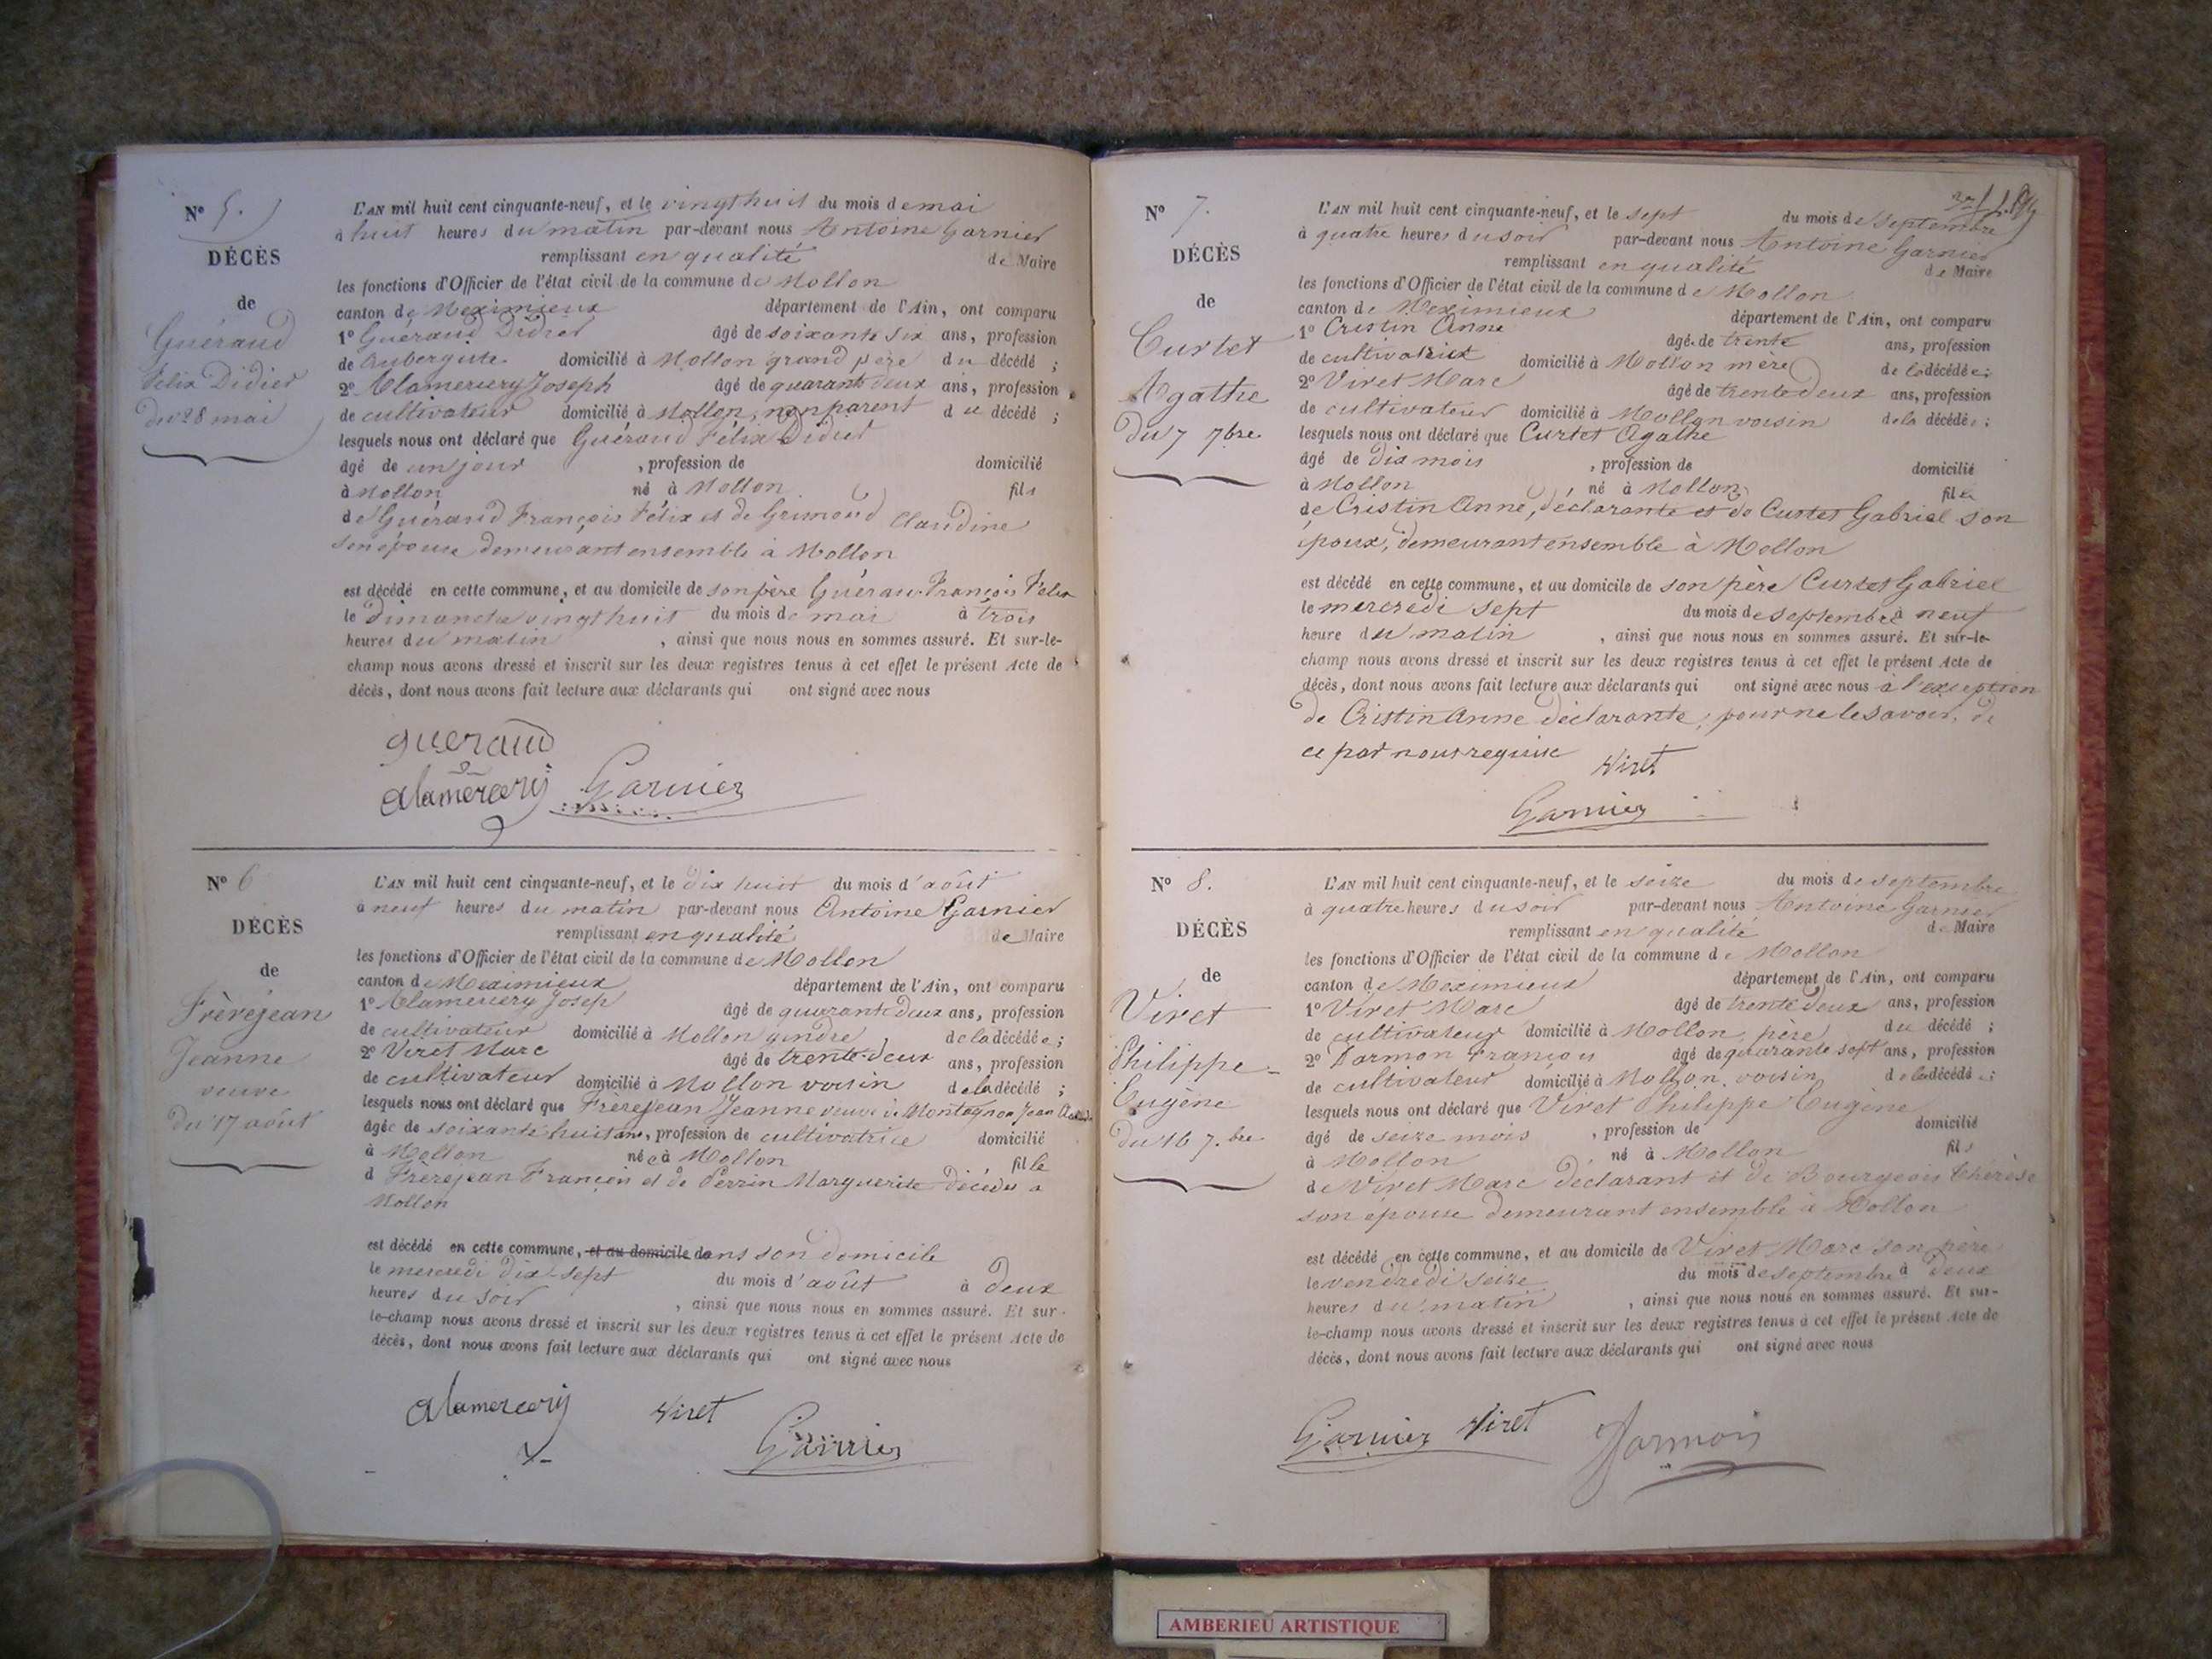 N° 5.
DÉCÈS
de
Guéraud
Félix Didier
du 28 mai
L'AN mil huit cent cinquante-neuf, et le vingt huit du mois de mai
à huit heures du matin par-devant nous Antoine Garnier
remplissant en qualité de Maire
les fonctions d'Officier de l'état civil de la commune de Mollon
canton de Meximieux département de l'Ain, ont comparu
1° Guéraud Didier âgé de soixante six ans, profession
de aubergiste domicilié à Mollon grand père du décédé ;
2° Alamercery Joseph âgé de quarante deux ans, profession
de cultivateur domicilié à Mollon, non parent du décédé ;
lesquels nous ont déclaré que Guéraud Félix Didier
âgé de un jour , profession de domicilié
à Mollon né à Mollon fils
de Guéraud François Félix et de Grimoud Claudine
son épouse demeurant ensemble à Mollon
est décédé en cette commune, et au domicile de son père Guérau François Félix
le dimanche vingt huit du mois de mai à trois
heures du matin , ainsi que nous nous en sommes assuré. Et sur-le-
champ nous avons dressé et inscrit sur les deux registres tenus à cet effet le présent Acte de
décès, dont nous avons fait lecture aux déclarants qui ont signé avec nous
gueraud
alamercery Garnier
N° 6
DÉCÈS
de
Frèrejean
Jeanne
veuve
du 17 août
L'AN mil huit cent cinquante-neuf, et le dix huit du mois d'août
à neuf heures du matin par-devant nous Antoine Garnier
remplissant en qualité de Maire
les fonctions d'Officier de l'état civil de la commune de Mollon
canton de Meximieux département de l'Ain, ont comparu
1° Alamercery Josep âgé de quarante deux ans, profession
de cultivateur domicilié à Mollon gendre de la décédée ;
2° Viret Marc âgé de trente-deux ans, profession
de cultivateur domicilié à Mollon voisin de la décédé ;
lesquels nous ont déclaré que Frèrejean Jeanne veuve de Montagnon Jean Claude
âgée de soixante huit ans, profession de cultivatrice domicilié
à Mollon née à Mollon fille
d Frèrejean François et de Perrin Marguerite décédés a
Mollon
est décédé en cette commune, et au domicile dans son domicile
le mercredi dix-sept du mois d'août à deux
heures du soir , ainsi que nous nous en sommes assuré. Et sur-
le-champ nous avons dressé et inscrit sur les deux registres tenus à cet effet le présent Acte de
décès, dont nous avons fait lecture aux déclarants qui ont signé avec nous
alamercery Viret
Garnier
N° 7.
DÉCÈS
de
Curtet
Agathe
du 7 7bre
L'AN mil huit cent cinquante-neuf, et le sept du mois de septembre
à quatre heures du soir par-devant nous Antoine Garnier
remplissant en qualité de Maire
les fonctions d'Officier de l'état civil de la commune de Mollon
canton de Meximieux département de l'Ain, ont comparu
1° Cristin Anne âgé de trente ans, profession
de cultivatrice domicilié à Mollon mère de la décédée ;
2° Viret Marc âgé de trente deux ans, profession
de cultivateur domicilié à Mollon voisin de la décédée ;
lesquels nous ont déclaré que Curtet Agathe
âgé de dix mois , profession de domicilié
à Mollon , né à Mollon fille
de Cristin Anne, déclarante et de Curtet Gabriel son
époux, demeurant ensemble à Mollon
est décédé en cette commune, et au domicile de son père Curtet Gabriel
le mercredi sept du mois de septembre à neuf
heure du matin , ainsi que nous nous en sommes assuré. Et sur-le-
champ nous avons dressé et inscrit sur les deux registres tenus à cet effet le présent Acte de
décès, dont nous avons fait lecture aux déclarants qui ont signé avec nous à l'exception
de Cristin Anne déclarante, pour ne le savoir, de
ce par nous requise Viret
Garnier
N° 8.
DÉCÈS
de
Viret
Philippe-
Eugène
du 16 7.bre
L'AN mil huit cent cinquante-neuf, et le seize du mois de septembre
à quatre heures du soir par-devant nous Antoine Garnier
remplissant en qualité de Maire
les fonctions d'Officier de l'état civil de la commune de Mollon
canton de Meximieux département de l'Ain, ont comparu
1° Viret Marc âgé de trente deux ans, profession
de cultivateur domicilié à Mollon, père du décédé ;
2° Darmon François âgé de quarante sept ans, profession
de cultivateur domicilié à Mollon, voisin de la décédé ;
lesquels nous ont déclaré que Viret Philippe Eugène
âgé de seize mois , profession de domicilié
à Mollon né à Mollon fils
de Viret Marc déclarant et de Bourgeois Thérèse
son épouse demeurant ensemble à Mollon
est décédé en cette commune, et au domicile de Viret Marc son père
le vendredi seize du mois de septembre à deux
heures du matin , ainsi que nous nous en sommes assuré. Et sur-
le-champ nous avons dressé et inscrit sur les deux registres tenus à cet effet le présent Acte de
décès, dont nous avons fait lecture aux déclarants qui ont signé avec nous
Garnier Viret Darmon
AMBERIEU ARTISTIQUE